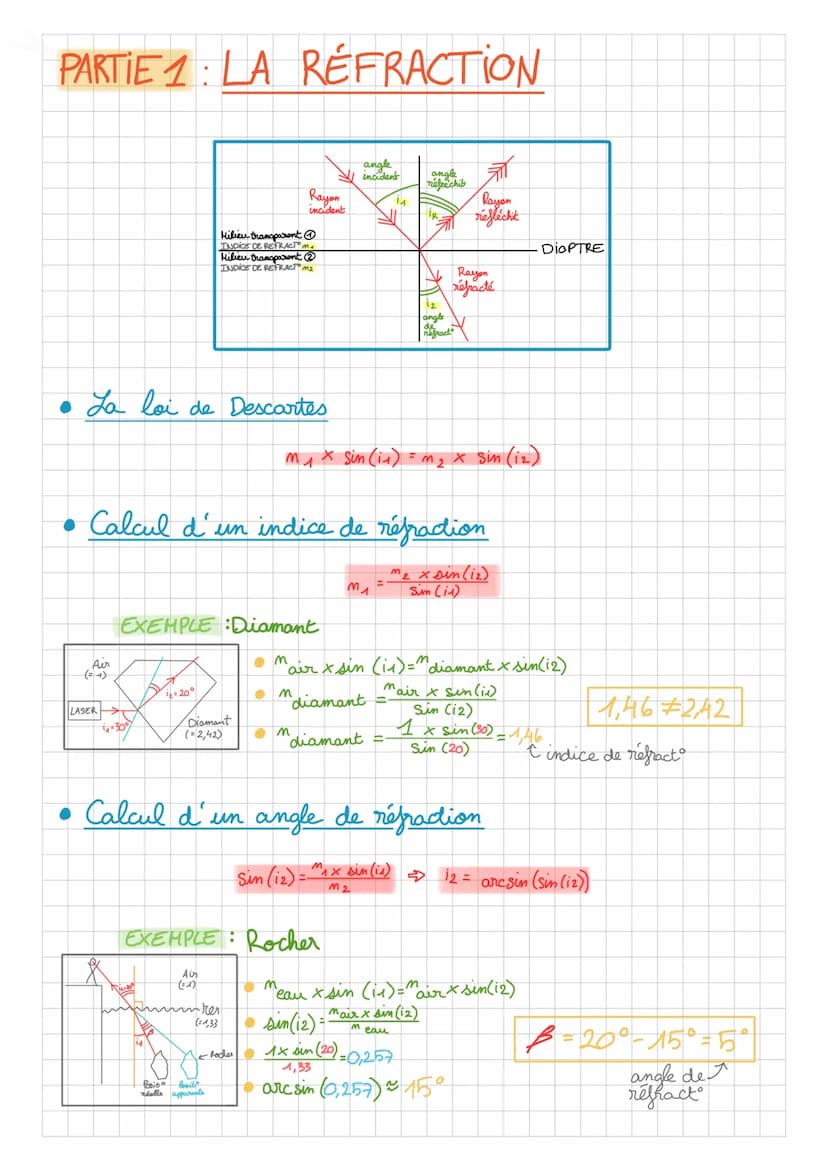 PARTIE 1 : LA RÉFRACTION
angle incident
angle réfléchit
Rayon incident
i1
iR
Rayon réfléchit
Milieu transparent ①
INDICE DE REFRACT° n1
Milieu transparent ②
INDICE DE REFRACT° n2
DIOPTRE
Rayon réfracté
i2
angle de réfract°
• La loi de Descartes
n1 × sin(i1) = n2 × sin(i2)
• Calcul d'un indice de réfraction
n1 = n2 × sin(i2) / sin(i1)
EXEMPLE : Diamant
Air (= 1)
i2=20°
LASER
i1=30°
Diamant (=2,42)
• nair × sin (i1) = ndiamant × sin(i2)
• ndiamant = nair × sin(i1) / sin(i2)
• ndiamant = 1 × sin(30) / sin(20) = 1,46
1,46 ≠ 2,42
↑ indice de réfract°
• Calcul d'un angle de réfraction
sin(i2) = n1 × sin(i1) / n2 ⇨ i2 = arcsin(sin(i2))
EXEMPLE : Rocher
Air (=1)
mer (=1,33
i2
← Rocher
Posit° réelle
Posit° apparente
• neau × sin (i1) = nair × sin(i2)
• sin(i2) = nair × sin(i2) / n eau
• 1 × sin(20) / 1,33 = 0,257
• arcsin (0,257) ≈ 15°
β = 20° - 15° = 5°
angle de réfract°